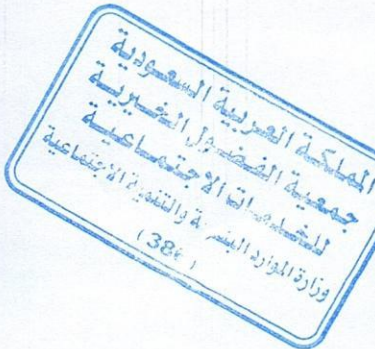 المملكة العربية السعودية
جمعية الفضول الخيرية
للخدمات الاجتماعية
وزارة الموارد البشرية والتنمية الاجتماعية